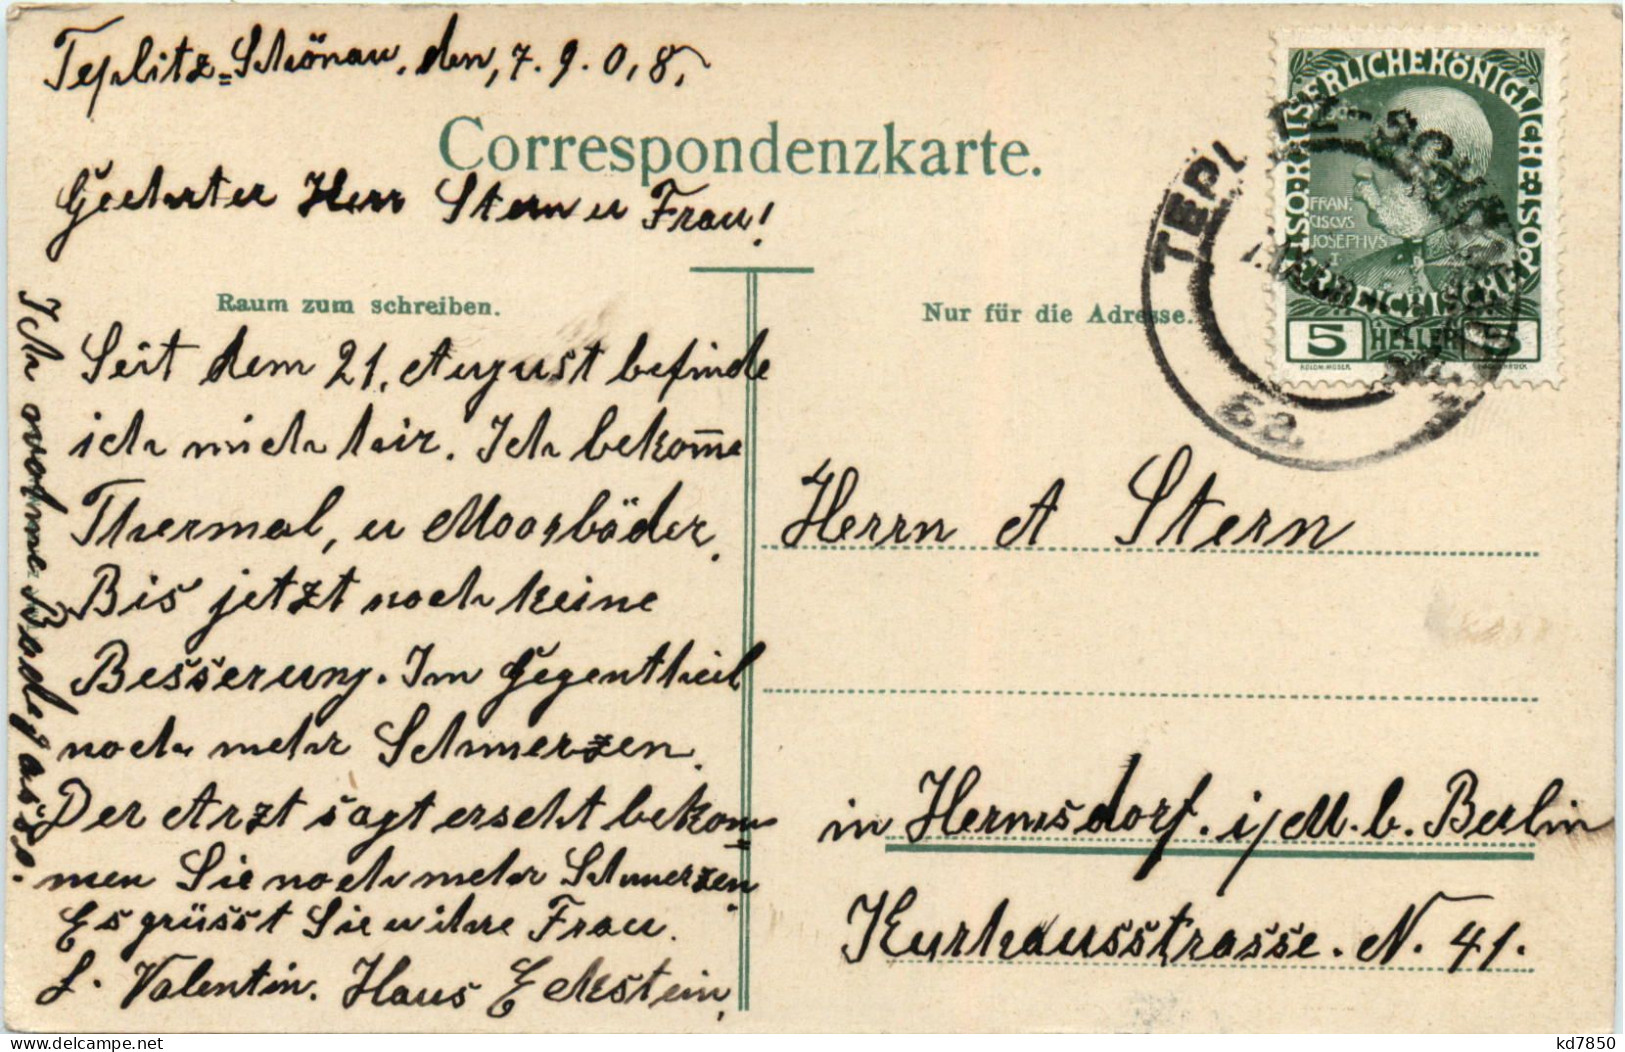 Teplitz=Schönau, den, 7. 9. 0,8,
Correspondenzkarte.
Geehrter Herr Stern u Frau!
Raum zum schreiben.
Seit dem 21. August befinde
ich mich hir. Ich bekom̅e
Thermal, u Moorbäder.
Bis jetzt noch keine
Besserung. Im Gegentheil
noch mehr Schmerzen.
Der Arzt sagt erscht bekom=
men Sie noch mehr Schmerzen.
Es grüsst Sie u ihre Frau.
L. Valentin. Haus Eckstein,
Ich wohne Badegasse.
Nur für die Adresse.
KAISERLICHEKÖNIGLICHE
ÖSTERREICHISCHE POST
FRAN-
CISCVS
JOSEPHVS
I
5 HELLER 5
KOLOM.MOSER.
TEPLITZ-SCHÖNAU
Herrn A Stern
in Hermsdorf. i/M. b. Berlin
Kurhausstrasse. N. 41.
kd7850